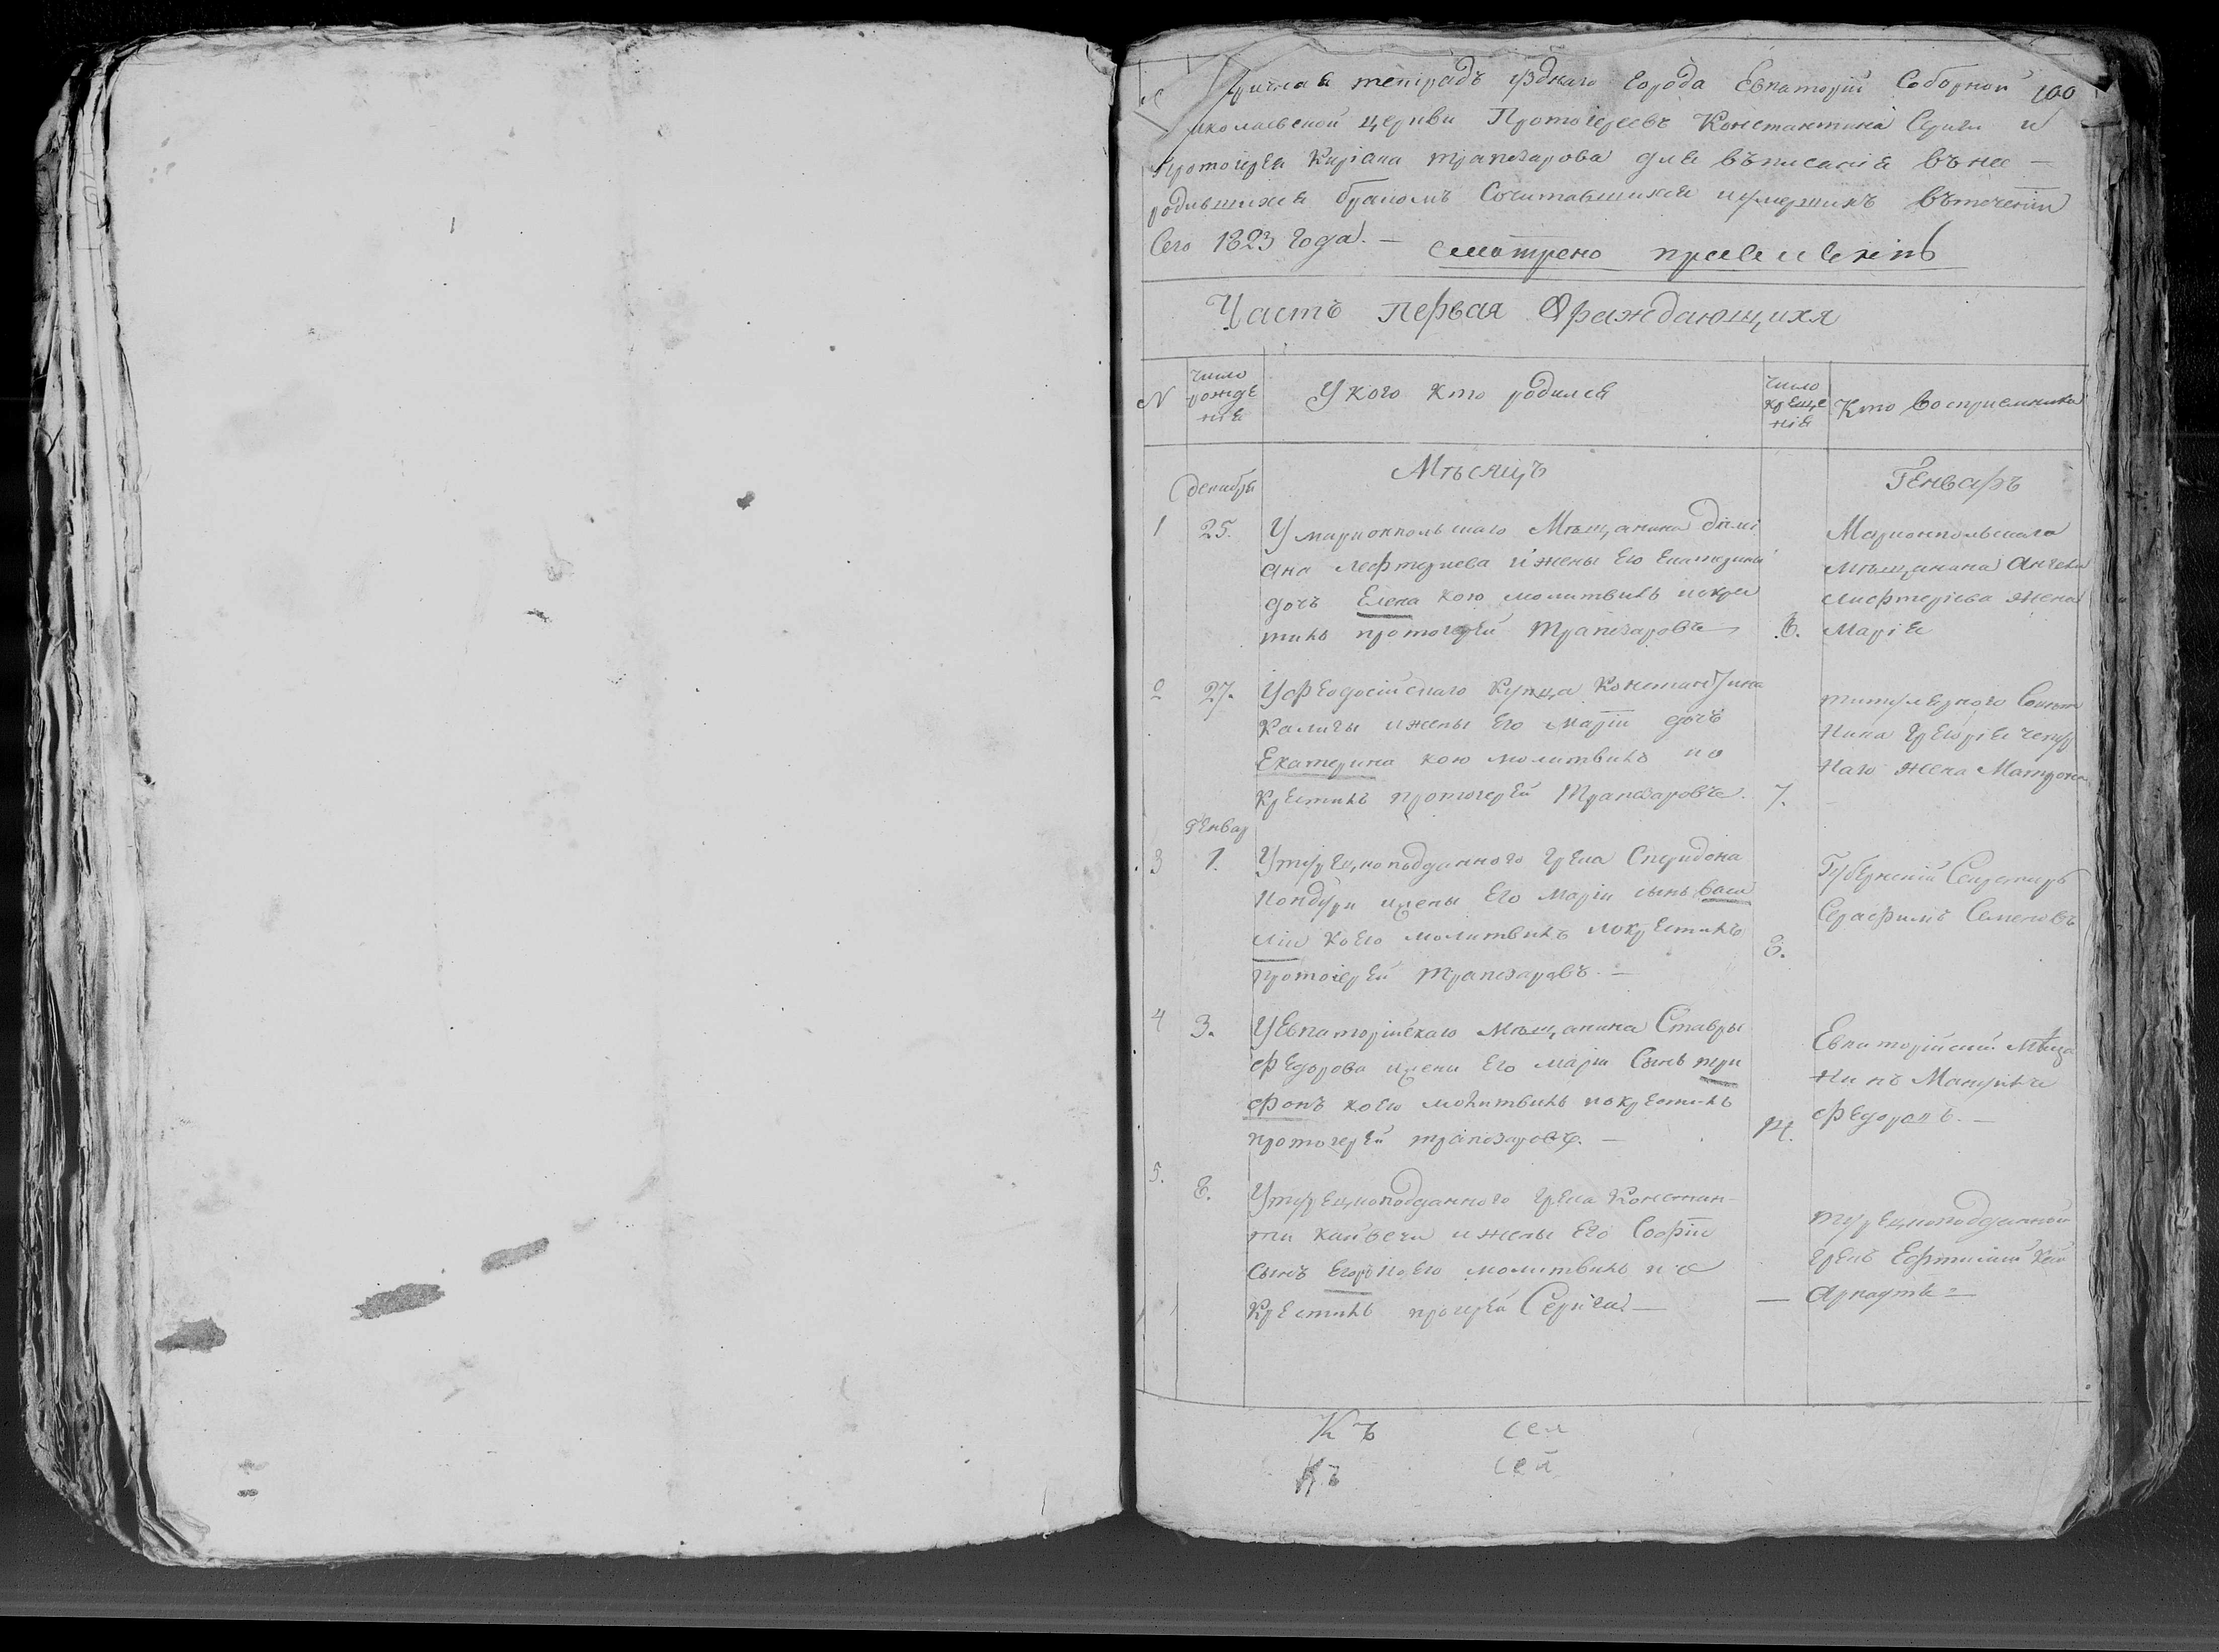 тетрадь уѣзднаго города Евпаторіи Соборной 100
иколаевской церкви Протоіереевъ Константина Серичи и
Протоіерея Киріана Трапезарова для въписанія въ не —
родившихся бракомъ Сочитавшихся иумершихъ вътеченіи
Сего 1823 года. —
смотрено
Часть первая Ораждающихся
N
число рожденія
У кого кто родился
число крещенія
Кто восприемники
Декабря
Мѣсяцъ
Генварь
1 25. У мариопольскаго Мѣщанина
Лефтериева и жены Его Екатерины
дочь Елена кою молитвилъ икре
тилъ протоіерей Трапезаровъ
6.
Мариопольскаго
мѣщанина
Лиефтеріева жена
Марія
2 27. Уфеодосійскаго Купца Константина
Калиги ижены Его Маріи дочь
Екатерина кою молитвилъ ио
крестилъ протоіерей Трапезаровъ.
7.
титулярного Совет
ника Григорія
наго жена Матрона
Генвар
3 1. Утурецкоподданного грека Спиридона
Кондури ижены Его Маріи сынъ Васи
лій коего молитвилъ покрестилъ
протоіерей Трапезаровъ. —
8.
Губернскій Секретарь
Серафимъ Семеновъ
4 3. УЕвпаторійскаго Мѣщанина Ставры
Федорова ижены Его Маріи Сынъ три
фонъ коего молитвилъ покрестилъ
протоіерей трапезаровъ. —
14.
Евпаторійский Мѣща
нинъ
Федоровъ. —
5. 8. Утурецкоподданного грека Констан-
ти ижены Его Софіи
сынъ Егоръ коего молитвилъ по
Крестилъ Серичи —
—
турецкоподданной
грекъ Ефтимій
Къ сея
Къ сей